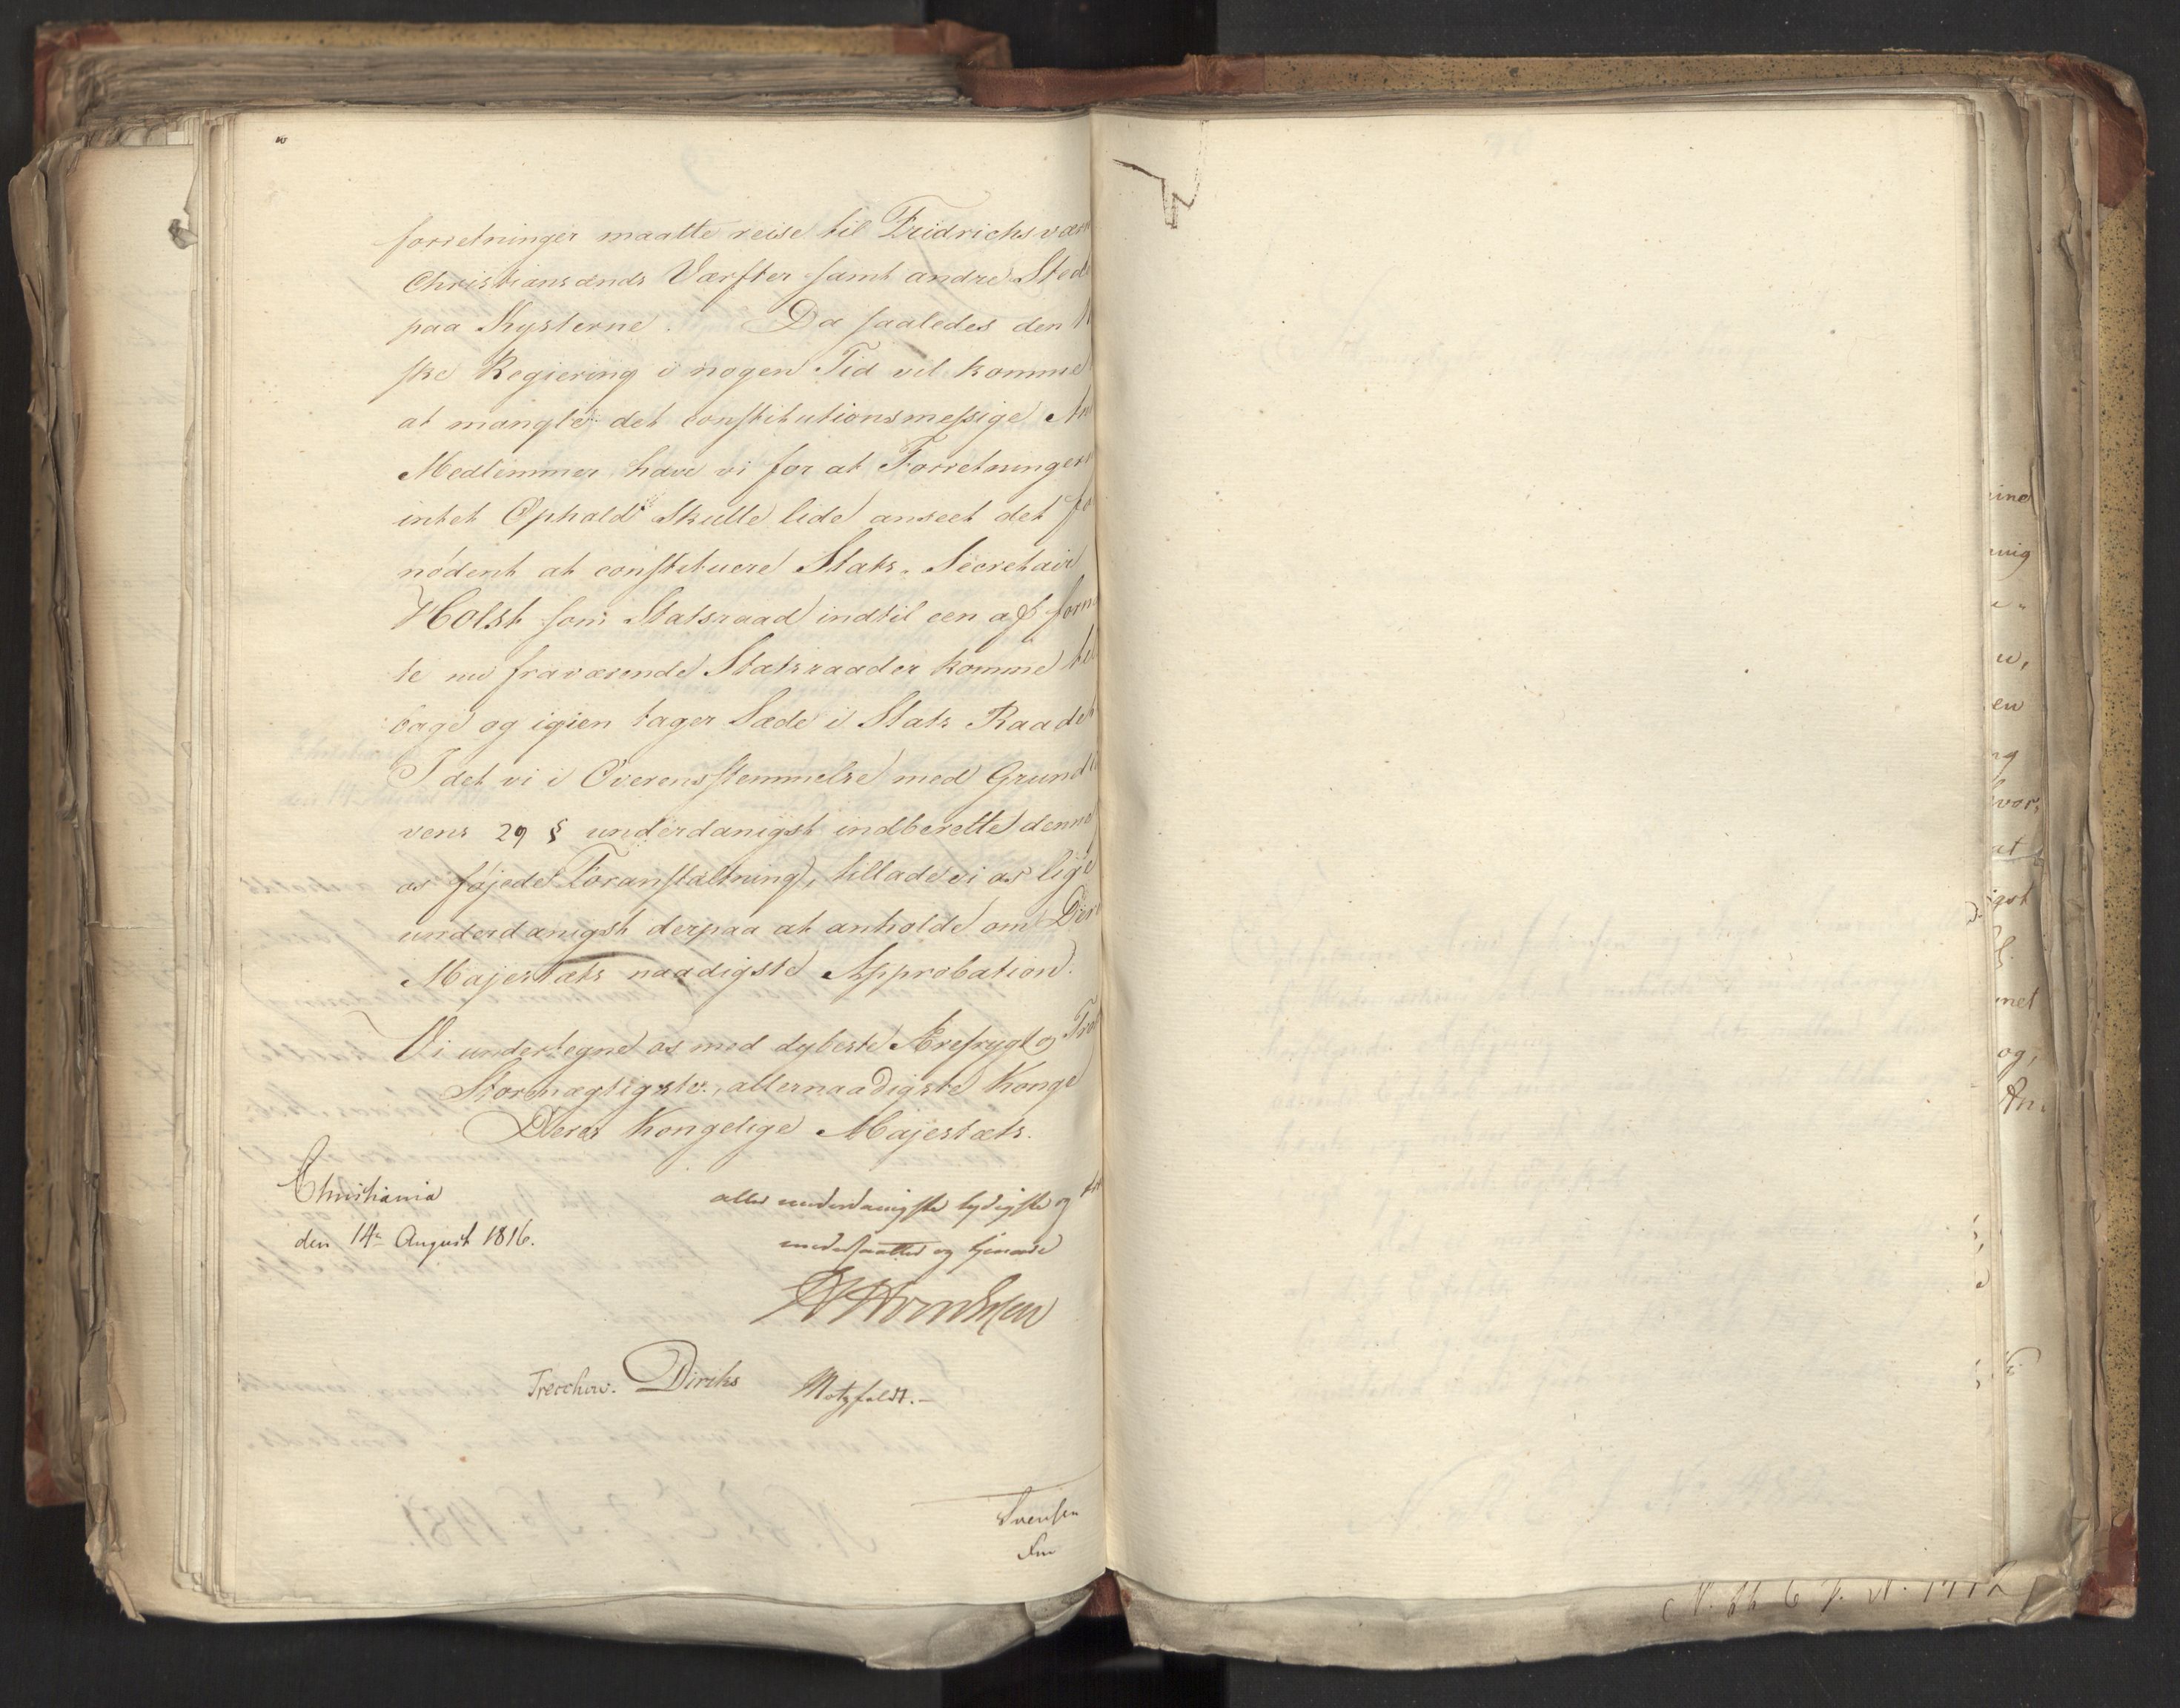 forretninger maatte reise til Fridrichsværn
Christiansands Værfter samt andre Sted
paa Kysterne. Da saaledes den N
ske Regiering i nogen Tid vil komme
at mangle det constitutionsmessige An
Medlemmer have vi for at Forretningern
intet Ophold skulle lide anseet det for
nødent at constituere Stats-Secretair
Holst som Statsraad indtil een af forn
te nu fraværende Statsraader komme til
bage og igien tager Sæde i Stats Raadet
I det vi i Overensstemmelse med Grundlo
vens 29 § underdanigst indberette denne
os føjede Foranstaltning, tillade vi os lige
underdanigst derpaa at anholde om Der
Majestæts naadigste Approbation.
Vi undertegne os med dybeste Ærefrygt og Tro
Stormægtigste, allernaadigste Konge
Deres Kongelige Majestæts.
Christiania
den 14de August 1816.
aller underdanigste lydigste og
undersaatter og tienere
Treschow. Diriks Motzfeldt.